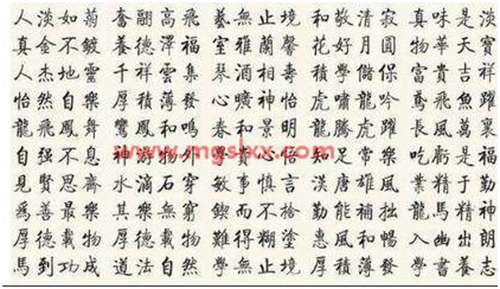 人淡如菊 奮翮高飛 藝無止境 和敬清寂 真味是淡
真金不鍍 養德澤福 室雅蘭馨 花好月圓 物華天寶
人杰地靈 千祥雲集 琴酒相壽 積學儲 富貴吉祥
怡然自樂 厚積薄發 心曠神怡 虎嘯龍吟 鳶飛魚躍
龍飛鳳舞 鸞鳳和鳴 春和景明 龍騰虎躍 長風萬裏
自强不息 神游物外 心怡 知足常樂 吃虧是福
見賢思齊 水滴石穿 敏事慎言 漢唐雄風 業精于勤
爲善最樂 其樂無窮 鍥而不捨 勤能補拙 龍馬精神
厚德載物 厚德載物 難得糊塗 惠風和暢 入幽出朗
馬到功成 道法自然 學無止境 厚積薄發 學書養志
www.mgslxx.com